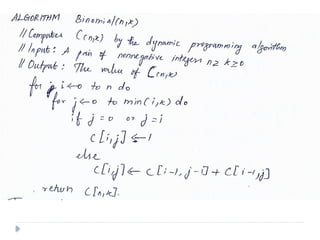 ALGORITHM Binomial(n,k)
// Computes C(n,k) by the dynamic programming algorithm
// Input: A pair of nonnegative integers n≥ k≥0
// Output: The value of C(n,k)
for i←0 to n do
for j←0 to min(i,k) do
if j=0 or j=i
C[i,j]←1
else
C[i,j]← C[i-1, j-1]+ C[i-1,j]
return C[n,k].